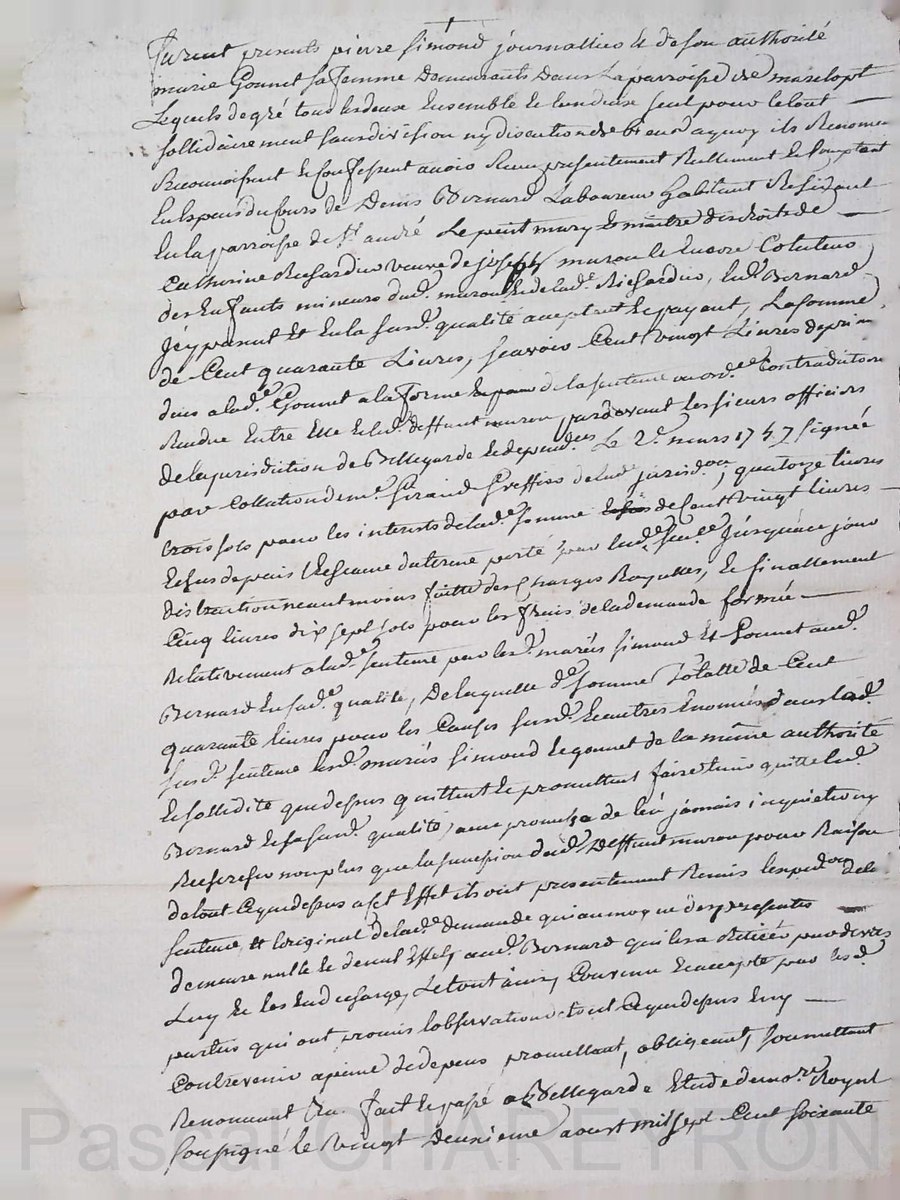 furent presents pierre simond journallier et de son authorité
marie Gonnet sa femme Demeurants Dans La parroisse de
Lequels de gré tous les deux Ensemble et lun deux seul pour le tout
sollidairement sans division ny discution de biens a quoy ils Renoncent
Reconnoissent et Confessent avoir Receu presentement Reellement et Comptant
En Especes du Cours de Denis Bernard Laboureur habitant Residant
En la parroisse de St. andré Le petit mary et maître des droits de
Catherine veuve de joseph maron et Encore Cotuteur
des Enfants mineurs dud. maron et de lad.e led. Bernard
jcy present Et En la susd. qualité aceptant et payant, La somme
de Cent quarante Livres, scavoir Cent vingt Livres de prin
dues a lad.e Gonnet a la forme de la sentence Contradictoire
Rendue Entre Elle et led. deffunt maron pardevant les sieurs officiers
de la jurisdiction de Bellegarde et dependces Le 2e. mars 1757 signée
par Collation de me. Giraud Greffier de lad. jurisd.on, quatorze livres
trois sols pour les interests de lad.e somme de Cent vingt livres
Echus depuis porté par lad.e sen.ce jusqua ce jour
distraction neantmoins faitte des Charges Royalles, et finallement
Cinq livres dix sept sols pour les frais de la demande formée
Relativement a lad.e sentence par lesd. mariés simond Et Gonnet aud.
Bernard En sad.e qualité, De laquelle d.e somme Totalle de Cent
quarante livres pour les Causes susd. et autres Enoncées dans lad.
susd. sentence lesd. mariés simond et gonnet de la même authorité
et sollidité que dessus quittent et promettent faire tenir quitte led.
Bernard En sa susd. qualité, avec promesse de len jamais inquieter ny
Rechercher non plus que la succession dud. Deffunt maron pour Raison
de tout Ce que dessus a cet Effet ils ont presentement Remis lexpedon de la
sentence, et loriginal de lad.e demande qui au moyen des presentes
demeure nulle et de nul Effet, aud. Bernard qui les a Retirés
Luy et les En decharge, Le tout ainsy Convenu et accepté par lesd.
parties qui ont promis lobservation de tout Ce que dessus
Contrevenir a peine de depens promettant, obligeant, soumettant
Renoncant &a. fait et passé a Bellegarde Etude du no.re Royal
soussigné le vingt deuxieme aoust mil sept Cent soixante
Pascal CHAREYRON